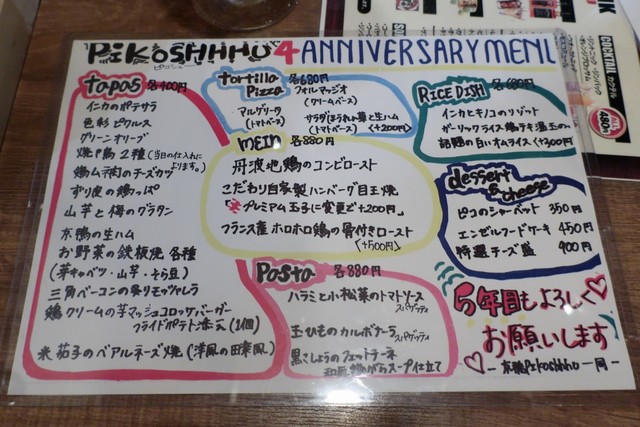 PiKOSHHHU 4 ANNIVERSARY MENU
ピコシュー
tapas 各400円
インカのポテサラ
色彩ピクルス
グリーンオリーブ
焼き鳥2種(当日の仕入れによります。)
鶏ムネ肉のチーズカツ
ずり皮の鶏っぱ
山芋と梅のグラタン
京鴨の生ハム
お野菜の鉄板焼 各種
(芽キャベツ・山芋・そら豆)
三角ベーコンの炙りモッツァレラ
鶏クリームの芋マッシュコロッケバーガー
フライドポテト添え(1個)
米茄子のベアルネーズ焼(洋風の田楽風)
tortilla Pizza 各680円
マルゲリータ
(トマトベース)
フォルマッジオ
(クリームベース)
サラダほうれん草と生ハム
(トマトベース) <+200円>
mein 各880円
丹波地鶏のコンビロースト
こだわり自家製ハンバーグ目玉焼
「プレミアム玉子に変更で+200円」
フランス産ホロホロ鶏の骨付きロースト
<+500円>
Pasta 各880円
ハラミと小松菜のトマトソース
スパゲッティ
玉ひものカルボナーラ
スパゲッティ
黒こしょうのフェットチーネ
スープ仕立て
RICE DISH 各680円
インカとキノコのリゾット
ガーリックライス 鶏ラキ温玉のせ
話題の白いオムライス <+300円>
dessert & cheese
ピコのシャーベット 350円
エンゼルフードケーキ 450円
特選チーズ盛 900円
5年目もよろしく
お願いします
- 京橋Pikoshhhu一同 -
COCKTAIL カクテル
ALL 480円